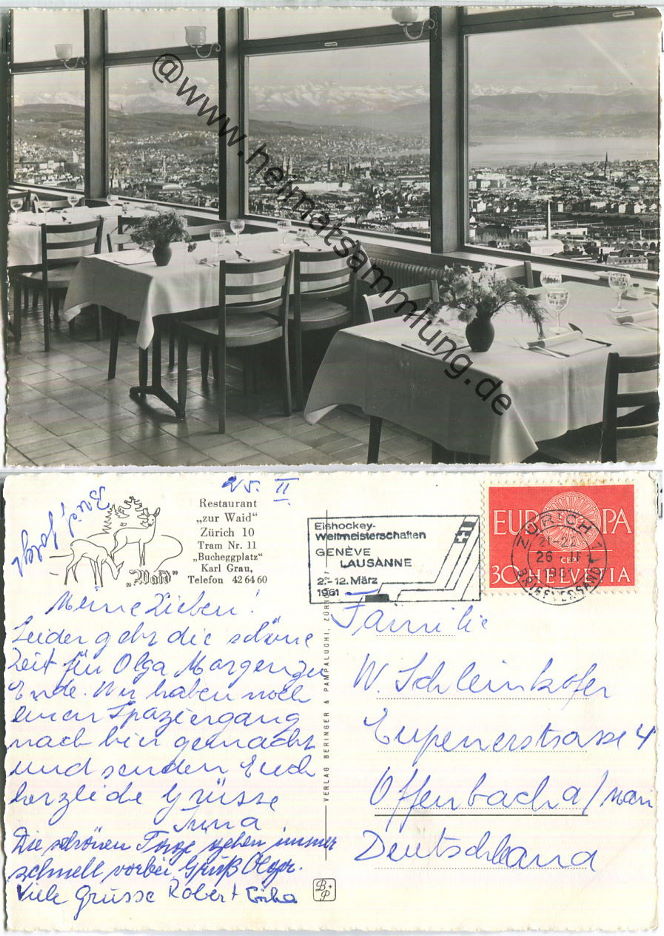 @www.heimatsammlung.de
25. II
Restaurant
„zur Waid"
Zürich 10
Tram Nr. 11
„Bucheggplatz"
Karl Grau,
Telefon 42 64 60
„Waid"
Eishockey-
Weltmeisterschaften
GENÈVE
LAUSANNE
2.-12. März
1961
EUROPA
ZÜRICH
26. II
1961
BRIEFVERSAND
CEPT
30 HELVETIA
Meine Lieben!
Leider geht die schöne
Zeit für Olga Morgen zu
Ende. Wir haben noch
einen Spaziergang
nach hier gemacht
und senden Euch
herzliche Grüsse
Irma
Die schönen Tage gehen immer
schnell vorbei Gruß Olga.
Viele Grüsse Robert
VERLAG BERINGER & PAMPALUCHI, ZÜRICH
B+P
Familie
W. Schleinkofer
Eupenerstrasse 4
Offenbach a/main
Deutschland